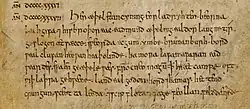 an dccccxxxvi
an dccccxxxvii Her æþelstan cyning eorla dryhten beorna
beahgifa 7 his broþor eac eadmund æþeling ealdor langne tir
geslogon æt sæcce sweorda ecgum ymbe brunanburh bord weal
clufan heowan heaþolinde hamora lafan afaran ead
weardes swa him geæþele wæs from cneo mægum þ hi æt campe oft
wiþ laþra gehwæne land ealgodon hord 7 hamas hettend
crungun sceotta leoda 7 scip flotan